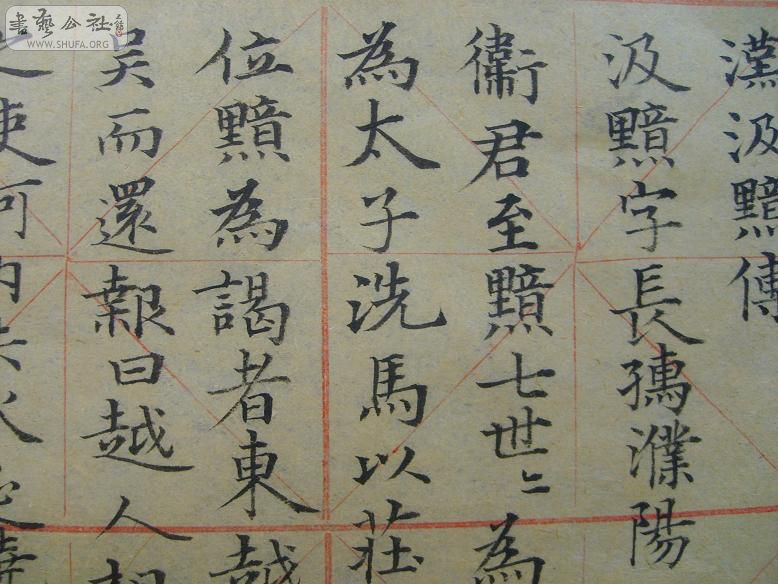 書藝公社
WWW.SHUFA.ORG
漢汲黯傳
汲黯字長孺濮陽
衛君至黯七世〻為
為太子洗馬以莊
位黯為謁者東越
吳而還報曰越人相
之使河內失火延燒